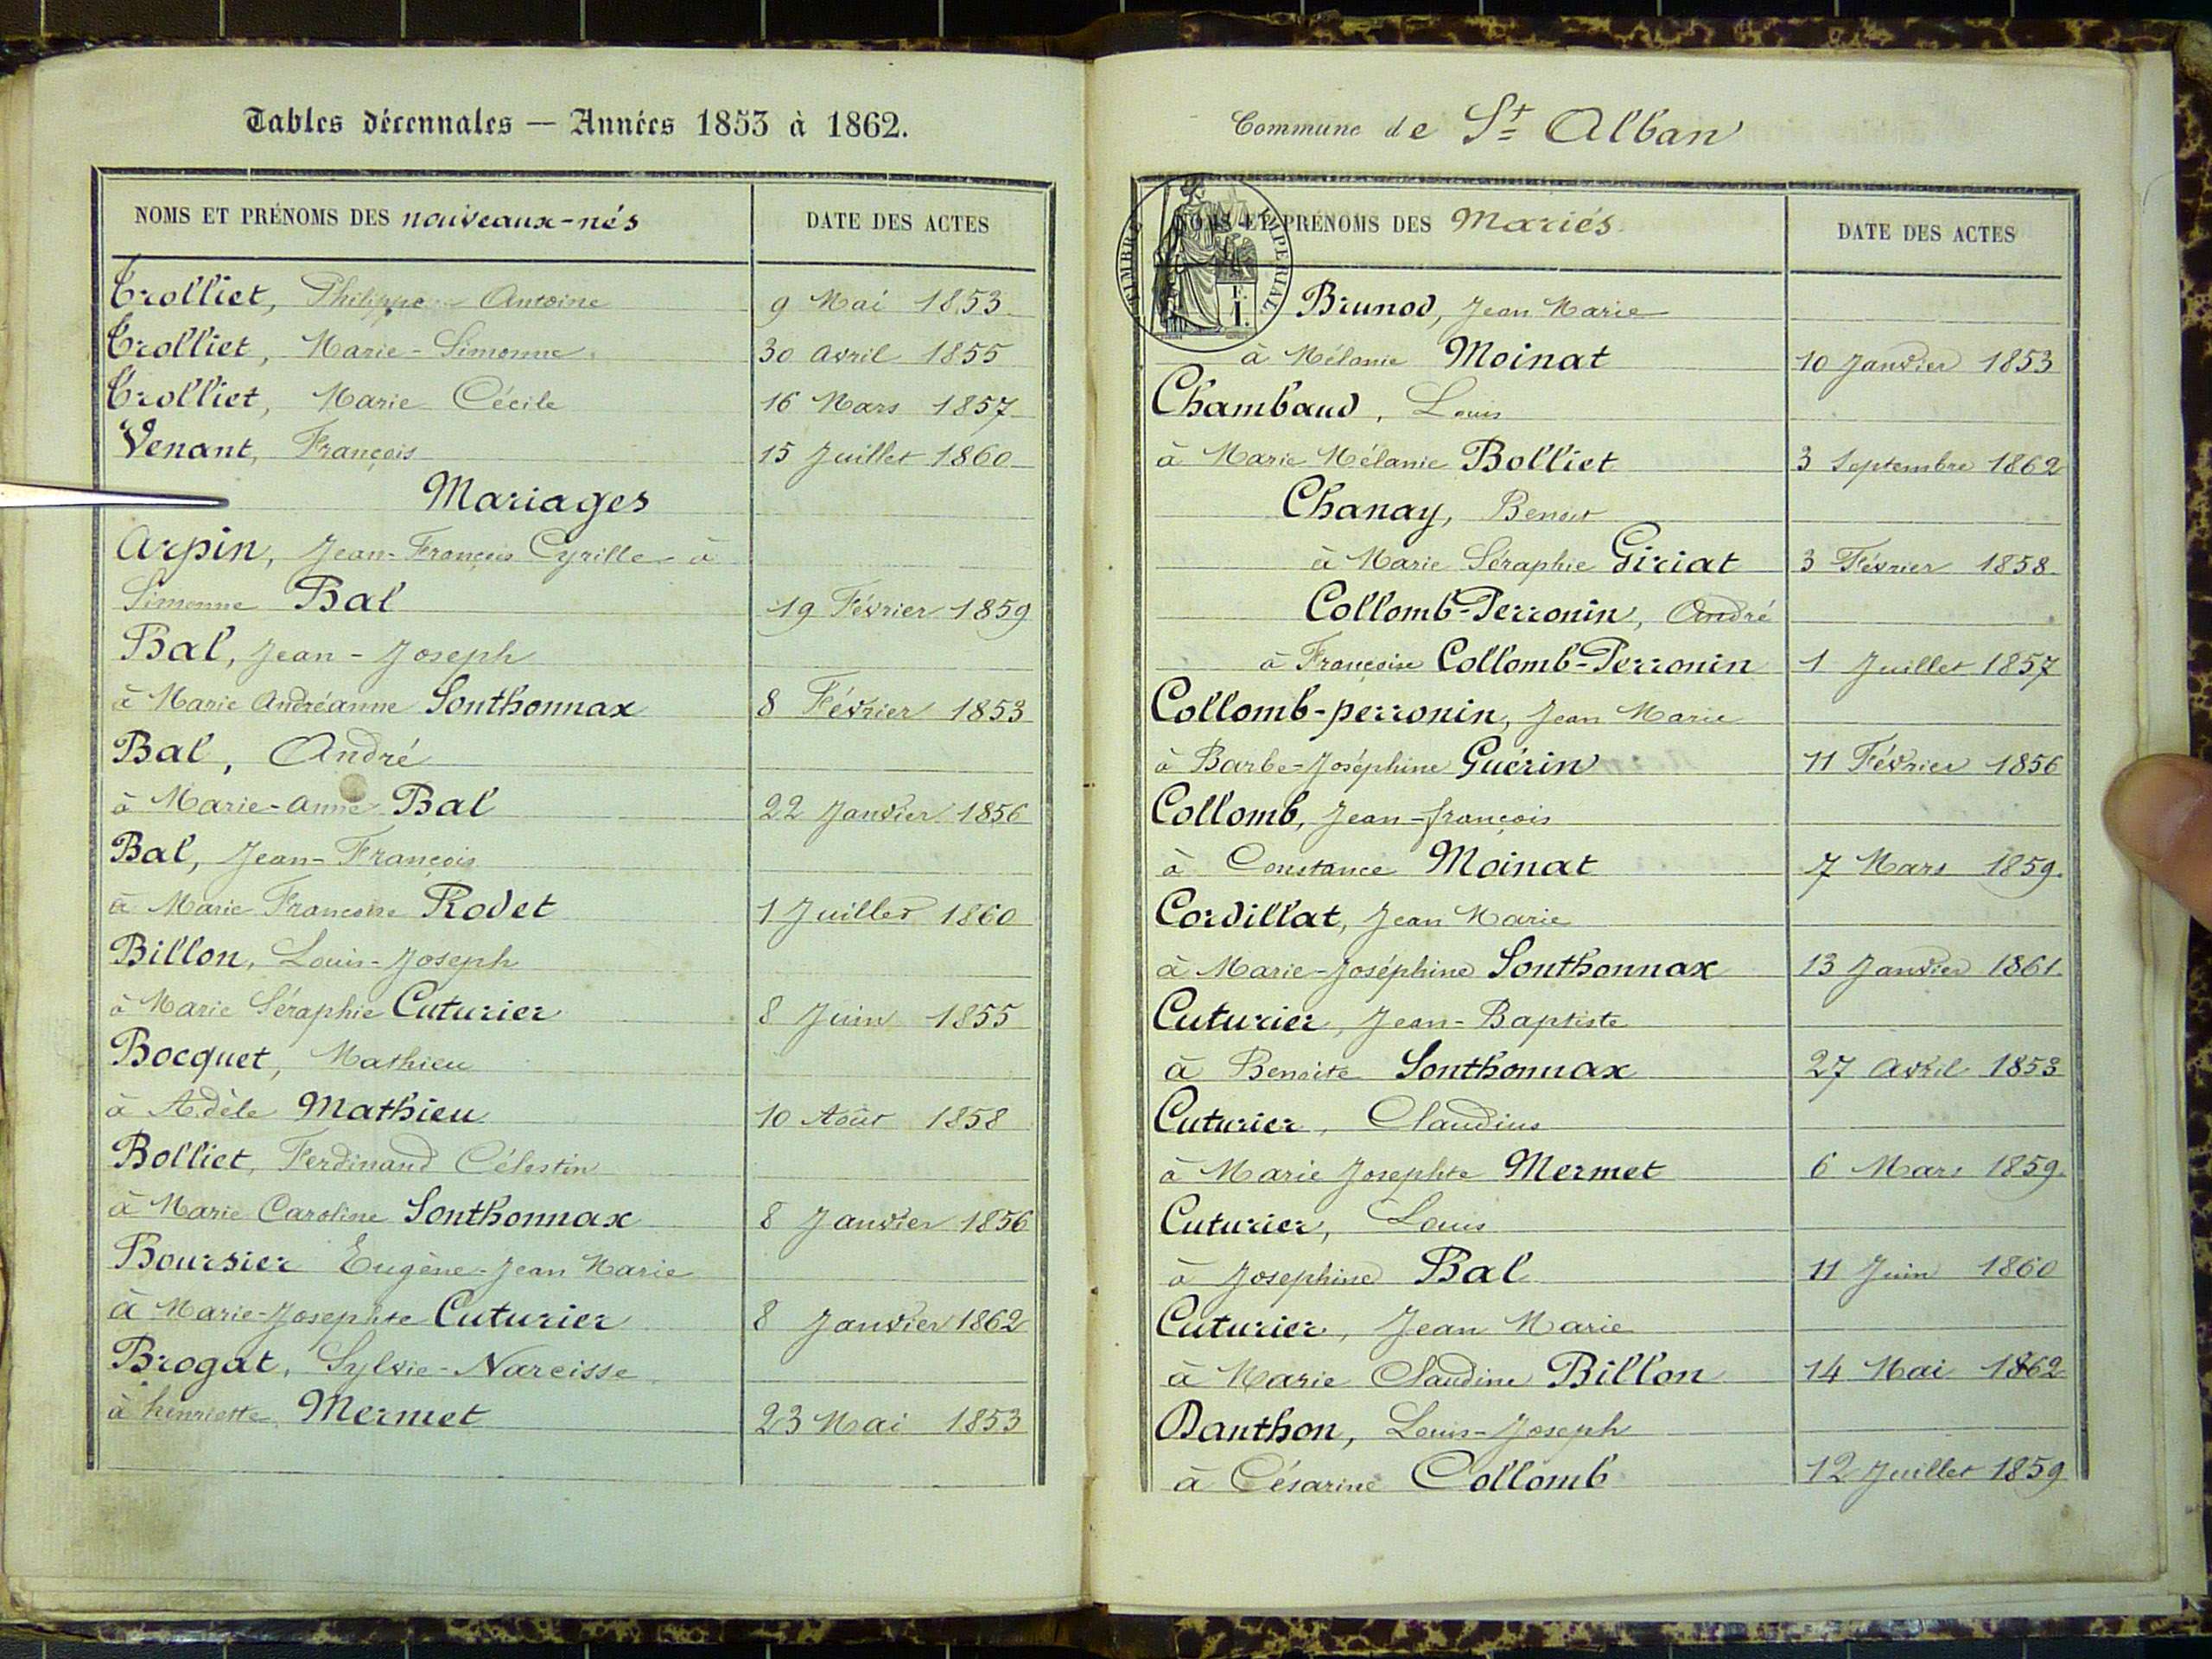 Tables décennales — Années 1853 à 1862.
NOMS ET PRÉNOMS DES nouveaux-nés
DATE DES ACTES
Trolliet, Philippe Antoine 9 Mai 1853
Trolliet, Marie-Simonne 30 avril 1855
Trolliet, Marie Cécile 16 Mars 1857
Venant, François 15 Juillet 1860
Mariages
Arpin, Jean-François Cyrille à
Simonne Bal 19 Février 1859
Bal, Jean-Joseph
à Marie Andréanne Sonthonnax 8 Février 1853
Bal, André
à Marie-anne Bal 22 Janvier 1856
Bal, Jean-François
à Marie Françoise Rodet 1 Juillet 1860
Billon, Louis-Joseph
à Marie Séraphie Cuturier 8 Juin 1855
Bocquet, Mathieu
à Adèle Mathieu 10 Août 1858
Bolliet, Ferdinand Célestin
à Marie Caroline Sonthonnax 8 Janvier 1856
Boursier Eugène-Jean Marie
à Marie-Josephte Cuturier 8 Janvier 1862
Brogat, Sylvie-Narcisse
à henriette Mermet 23 Mai 1853
Commune de St Alban
NOMS ET PRÉNOMS DES Mariés
DATE DES ACTES
TIMBRE IMPÉRIAL
1 F.
Brunod, Jean Marie
à Mélanie Moinat 10 Janvier 1853
Chambaud, Louis
à Marie Mélanie Bolliet 3 Septembre 1862
Chanay, Benoit
à Marie Séraphie Giriat 3 Février 1858
Collomb-Perronin, André
à Françoise Collomb-Perronin 1 Juillet 1857
Collomb-perronin, Jean Marie
à Barbe-Joséphine Guérin 11 Février 1856
Collomb, Jean-françois
à Constance Moinat 7 Mars 1859.
Cordillat, Jean Marie
à Marie-Joséphine Sonthonnax 13 Janvier 1861
Cuturier, Jean-Baptiste
à Benoite Sonthonnax 27 Avril 1853
Cuturier, Claudius
à Marie Josephte Mermet 6 Mars 1859
Cuturier, Louis
à Josephine Bal 11 Juin 1860
Cuturier, Jean Marie
à Marie Claudine Billon 14 Mai 1862
Danthon, Louis-Joseph
à Césarine Collomb 12 Juillet 1859